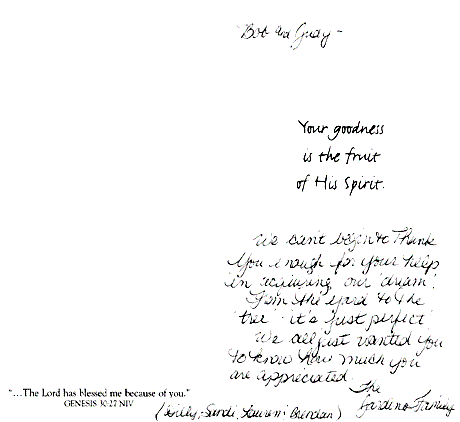 Bob and Judy -
Your goodness
is the fruit
of His Spirit.
We can't begin to Thank
You enough for your help
in acquiring our 'dream'.
From the yard to the
'tree' it's just perfect
We all just wanted you
to know how much you
are appreciated.
The
Family
"...The Lord has blessed me because of you."
GENESIS 30:27 NIV
Sandi, Lauren Brendan)